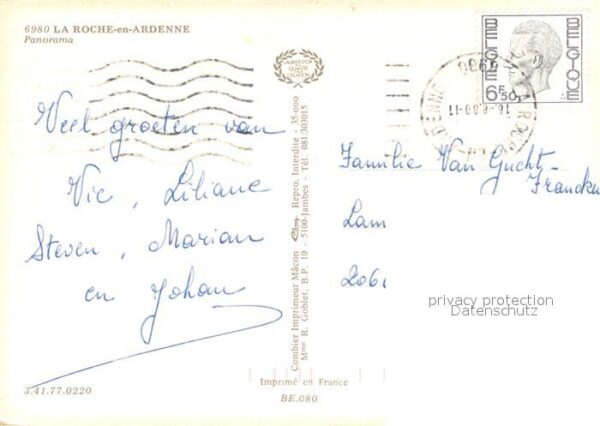 6980 LA ROCHE-en-ARDENNE
Panorama
Veel groeten van
Vic, Liliane
Steven, Marian
en Johan
3.41.77.0220
Combier Imprimeur Mâcon Cim Repro Interdite - 35-000
Mme R. Goblet, B.P. 10 - 5100-Jambes - Tél. 081/303015
Imprimé en France
BE.080
BELGIE BELGIQUE
6F50
6980
Familie Van Gucht-
Francken
Lam
206
privacy protection
Datenschutz